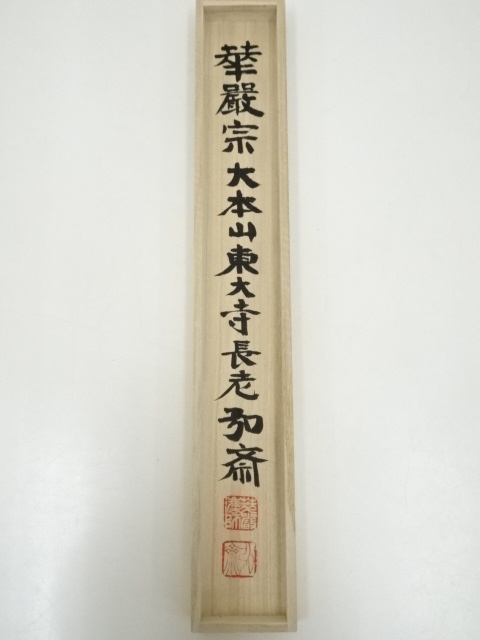 華厳宗大本山東大寺長老弘斎